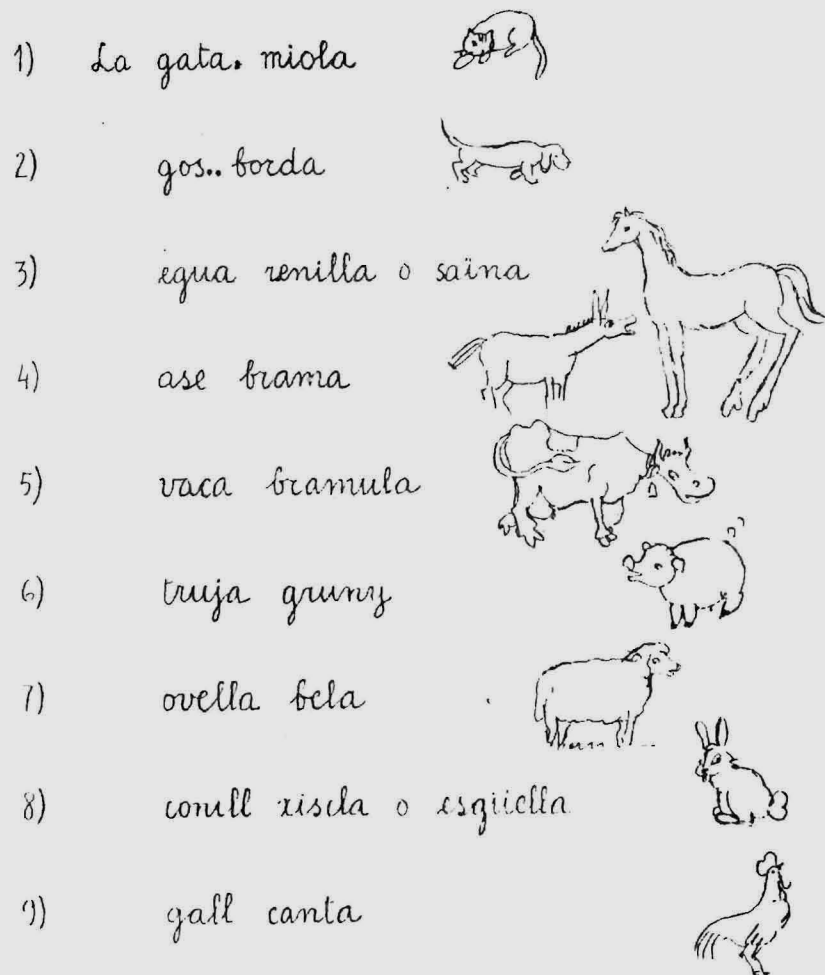 1) La gata. miola
2) gos.. borda
3) egua renilla o saïna
4) ase brama
5) vaca bramula
6) truja gruny
7) ovella bela
8) conill xiscla o esgüella
9) gall canta